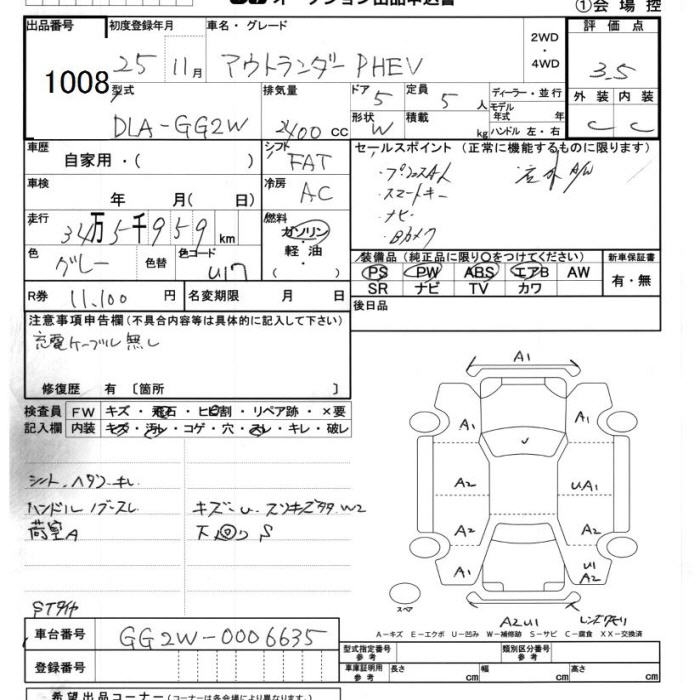 オークション出品申込書
①会場控
出品番号 初度登録年月 車名・グレード 2WD・4WD 評価点
1008 25 11月 アウトランダー PHEV 3.5
型式 排気量 ドア 5 定員 5人 ディーラー・並行 外装 内装
DLA-GG2W 2400cc 形状 W 積載 kg モデル年式 年式 C C
ハンドル 左・右
車歴 シフト セールスポイント (正常に機能するものに限ります)
自家用・( ) FAT
・スマートキー
車検 冷房 ・ナビ
年 月( 日) AC ・Bカメラ
走行 燃料
34万5千959km ガソリン
色 色替 色コード 軽・油 装備品 (純正品に限り○をつけてください) 新車保証書
グレー U17 PS PW ABS エアB AW 有・無
SR ナビ TV カワ
R券 11,100円 名変期限 月 日 後日品
注意事項申告欄 (不具合内容等は具体的に記入して下さい)
充電ケーブル無し
修復歴 有 〔箇所 〕
検査員 FW キズ・飛石・ヒビ割・リペア跡・×要
記入欄 内装 キズ・汚レ・コゲ・穴・スレ・キレ・破レ
A1
A1 A1
A2 UA1
A2 A2
A1 U1
A2
シート、ヘタリ
ハンドル
荷室A 下回り S
STタイヤ
スペア A2U1
A-キズ E-エクボ U-凹み W-補修跡 S-サビ C-腐食 XX-交換済
車台番号 GG2W-0006635
登録番号
型式指定番号 参考 類別区分番号 参考
車庫証明用 参考 長さ cm 幅 cm 高さ cm
希望出品コーナー (コーナーは各会場により異なります)